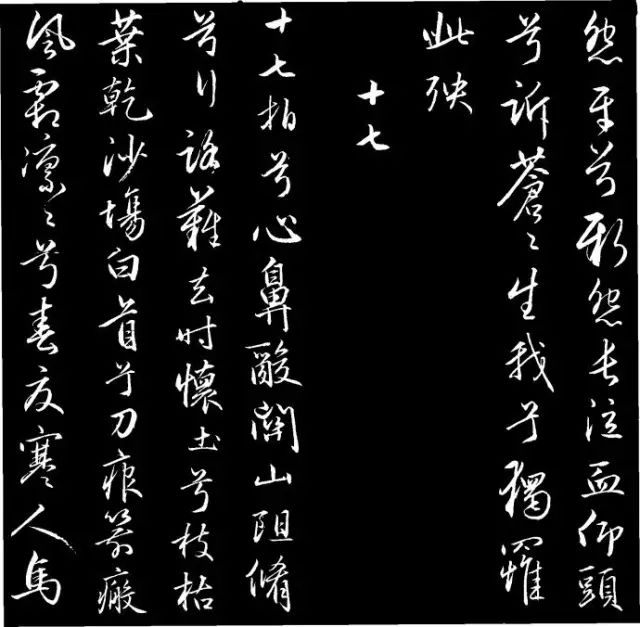 怨平兮新怨長泣血仰頭
兮訴蒼〻生我兮獨罹
此殃
十七
十七拍兮心鼻酸關山阻脩
兮行路難去時懷土兮枝枯
葉乾沙場白首兮刀痕箭瘢
風霜凜〻兮春夏寒人馬